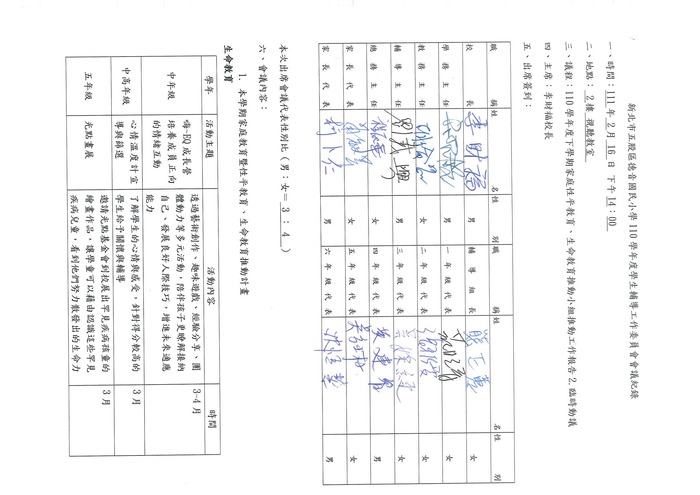 新北市五股區德音國民小學 110 學年度學生輔導工作委員會會議紀錄
一、時間：111 年 2 月 16 日 下午 14：00
二、地點：2 樓 視聽教室
三、議程：110 學年度下學期家庭性平教育、生命教育推動小組推動工作報告 2.臨時動議
四、主席：李財福校長
五、出席簽到：
職稱 姓名 性別 職稱 姓名 性別
校長 李財福 男 輔導組長 女
學務主任 男 一年級代表 女
教務主任 男 二年級代表 女
輔導主任 女 三年級代表 女
總務主任 男 四年級代表 男
家長代表 女 五年級代表 女
家長代表 柯卜仁 男 六年級代表 男
本次出席會議代表性別比（男：女= 3 : 4 ）
六、會議內容：
1. 本學期家庭教育暨性平教育、生命教育推動計畫
生命教育
學年 活動主題 活動內容 時間
中年級 嗨-EQ 成長營 培養成員正向的情緒互動 透過藝術創作、趣味遊戲、經驗分享、團體動力等多元活動，陪伴孩子更瞭解接納自己、發展良好人際技巧，增進未來適應能力 3-4 月
中高年級 心情溫度計宣導與篩選 了解學生的心情與感受，針對得分較高的學生給予關懷與輔導 3 月
五年級 光點畫展 邀請光點基金會到校展出罕見疾病孩童的繪畫作品，讓學童可以藉由認識這些罕見疾病兒童，看到他們努力散發出的生命力 3 月